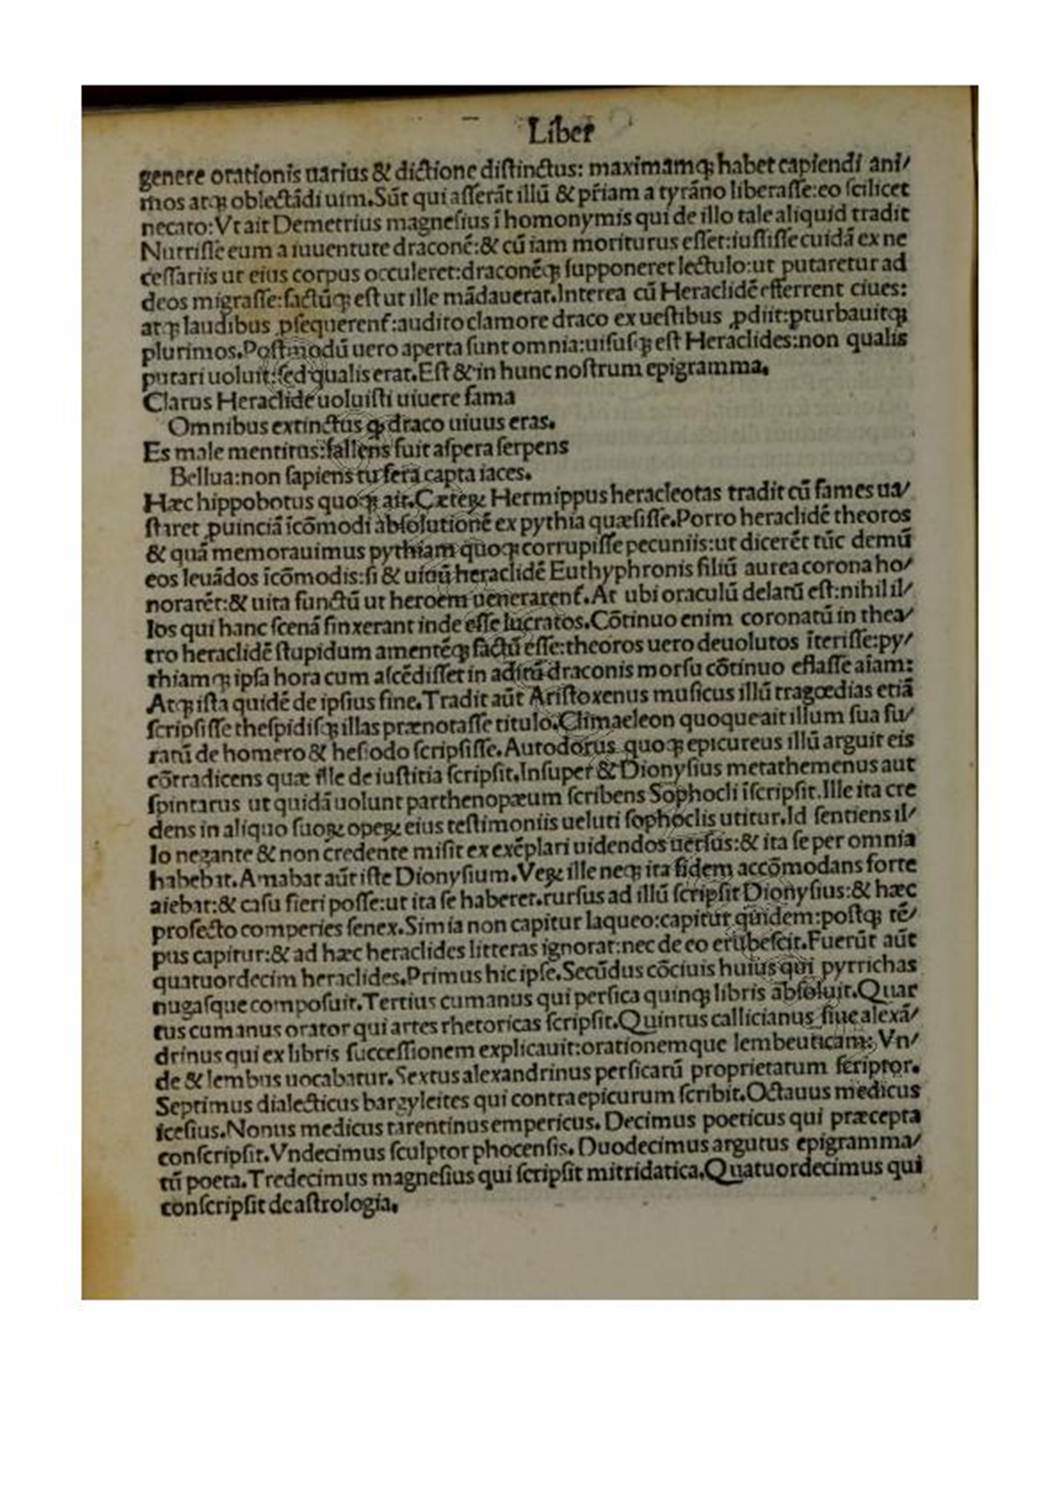 Liber
genere orationis uarius & dictione distinctus: maximamqꝫ habet capiendi ani/
mos atqꝫ oblectādi uim. Sūt qui asserāt illū & p̄riam a tyrāno liberasse: eo scilicet
necato: Vt ait Demetrius magnesius ī homonymis qui de illo tale aliquid tradit
Nutrisse eum a iuuentute draconē: & cū iam moriturus esset: iussisse cuidā ex ne
cessariis ut eius corpus occuleret: draconēqꝫ supponeret lectulo: ut putaretur ad
deos migrasse: factūqꝫ est ut ille mādauerat. Interea cū Heraclidē efferrent ciues:
atqꝫ laudibus ꝓsequerent᷑: audito clamore draco ex uestibus ꝓdiit: ꝑturbauitqꝫ
plurimos. Postmodū uero aperta sunt omnia: uisusqꝫ est Heraclides: non qualis
putari uoluit: sed qualis erat. Est & in hunc nostrum epigramma.
Clarus Heraclide uoluisti uiuere fama
Omnibus extinctus qꝫ draco uiuus eras.
Es male mentitus: fallens fuit aspera serpens
Bellua: non sapiens tu fera capta iaces.
Hæc hippobotus quoqꝫ ait. Cæteꝝ Hermippus heracleotas tradit cū fames ua/
staret ꝓuinciā īcōmodi absolutionē ex pythia quæsisse. Porro heraclidē theoros
& quā memorauimus pythiam quoqꝫ corrupisse pecuniis: ut dicerēt tūc demū
eos leuādos īcōmodis: si & uiuū heraclidē Euthyphronis filiū aurea corona ho/
norarēt: & uita functū ut heroem uenerarent᷑. At ubi oraculū delatū est: nihil il/
los qui hanc scenā finxerant inde esse lucratos. Cōtinuo enim coronatū in thea/
tro heraclidē stupidum amentēqꝫ factū esse: theoros uero deuolutos īterisse: py/
thiamqꝫ ipsa hora cum ascēdisset in aditū draconis morsu cōtinuo efflasse aīam:
Atqꝫ ista quidē de ipsius fine. Tradit aūt Aristoxenus musicus illū tragœdias etiā
scripsisse thespidisqꝫ illas prænotasse titulo. Climaeleon quoque ait illum sua fu/
ratū de homero & hesiodo scripsisse. Autodorus quoqꝫ epicureus illū arguit eis
cōtradicens quæ ille de iustitia scripsit. Insuper & Dionysius metathemenus aut
spintarus ut quidā uolunt parthenopæum scribens Sophocli īscripsit. Ille ita cre
dens in aliquo suoꝝ opeꝝ eius testimoniis ueluti sophoclis utitur. Id sentiens il/
lo negante & non credente misit ex exēplari uidendos uersus: & ita se per omnia
habebat. Amabat aūt iste Dionysium. Veꝝ ille neqꝫ ita fidem accōmodans forte
aiebat: & casu fieri posse: ut ita se haberet. rursus ad illū scripsit Dionysius: & hæc
profecto comperies senex. Simia non capitur laqueo: capitur quidem: postqꝫ tē/
pus capitur: & ad hæc heraclides litteras ignorat: nec de eo erubescit. Fuerūt aūt
quatuordecim heraclides. Primus hic ipse. Secūdus cōciuis huius qui pyrrichas
nugasque composuit. Tertius cumanus qui persica quinqꝫ libris absoluit. Quar
tus cumanus orator qui artes rhetoricas scripsit. Quintus callicianus siue alexā/
drinus qui ex libris successionem explicauit: orationemque lembeuticam: Vn/
de & lembus uocabatur. Sextus alexandrinus persicarū proprietatum scriptor.
Septimus dialecticus bargyleites qui contra epicurum scribit. Octauus medicus
icesius. Nonus medicus tarentinus empericus. Decimus poeticus qui præcepta
conscripsit. Vndecimus sculptor phocensis. Duodecimus argutus epigramma/
tū poeta. Tredecimus magnesius qui scripsit mitridatica. Quatuordecimus qui
conscripsit de astrologia.